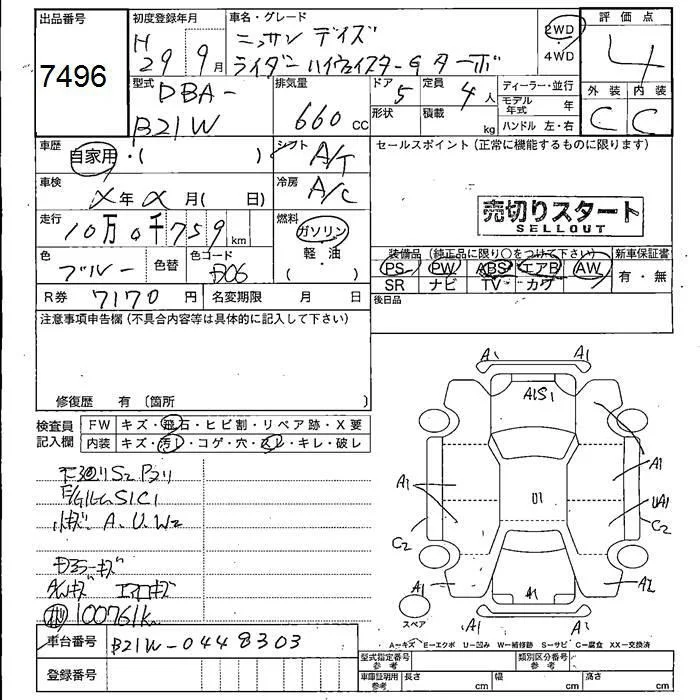 出品番号
7496
初度登録年月
H 29 9月
車名・グレード
ニッサン デイズ
ライダー ハイウェイスターG ターボ
2WD
・
4WD
評価点
4
外装 内装
C C
型式
DBA-
B21W
排気量
660 cc
ドア 5
定員 4人
形状
積載 kg
ディーラー・並行
モデル年式 年
ハンドル 左・右
車歴
自家用・( )
シフト
A/T
セールスポイント (正常に機能するものに限ります)
車検
年 月( 日)
冷房
A/C
売切りスタート
SELLOUT
走行
10万0千759km
燃料
ガソリン
・
軽・油
色
ブルー
色替
色コード
装備品 (純正品に限り○をつけて下さい)
新車保証書
PS PW ABS エアB AW
有・無
SR ナビ TV カワ
R券 7170円
名変期限 月 日
後日品
注意事項申告欄 (不具合内容等は具体的に記入して下さい)
修復歴 有 〔箇所 〕
検査員
記入欄
FW キズ・飛石・ヒビ割・リペア跡・X要
内装 キズ・汚レ・コゲ・穴・スレ・キレ・破レ
S2
S1C1
A.U.W2
キズ
キズ
100761km
A1 A1
A1S1
A1
A1
U1
UA1
C2
C2
A1
A1
A2
スペア
A=キズ E=エクボ U=凹み W=補修跡 S=サビ C=腐食 XX=交換済
車台番号 B21W-0448303
登録番号
型式指定番号
参考
類別区分番号
参考
車庫証明用
参考
長さ cm
幅 cm
高さ cm